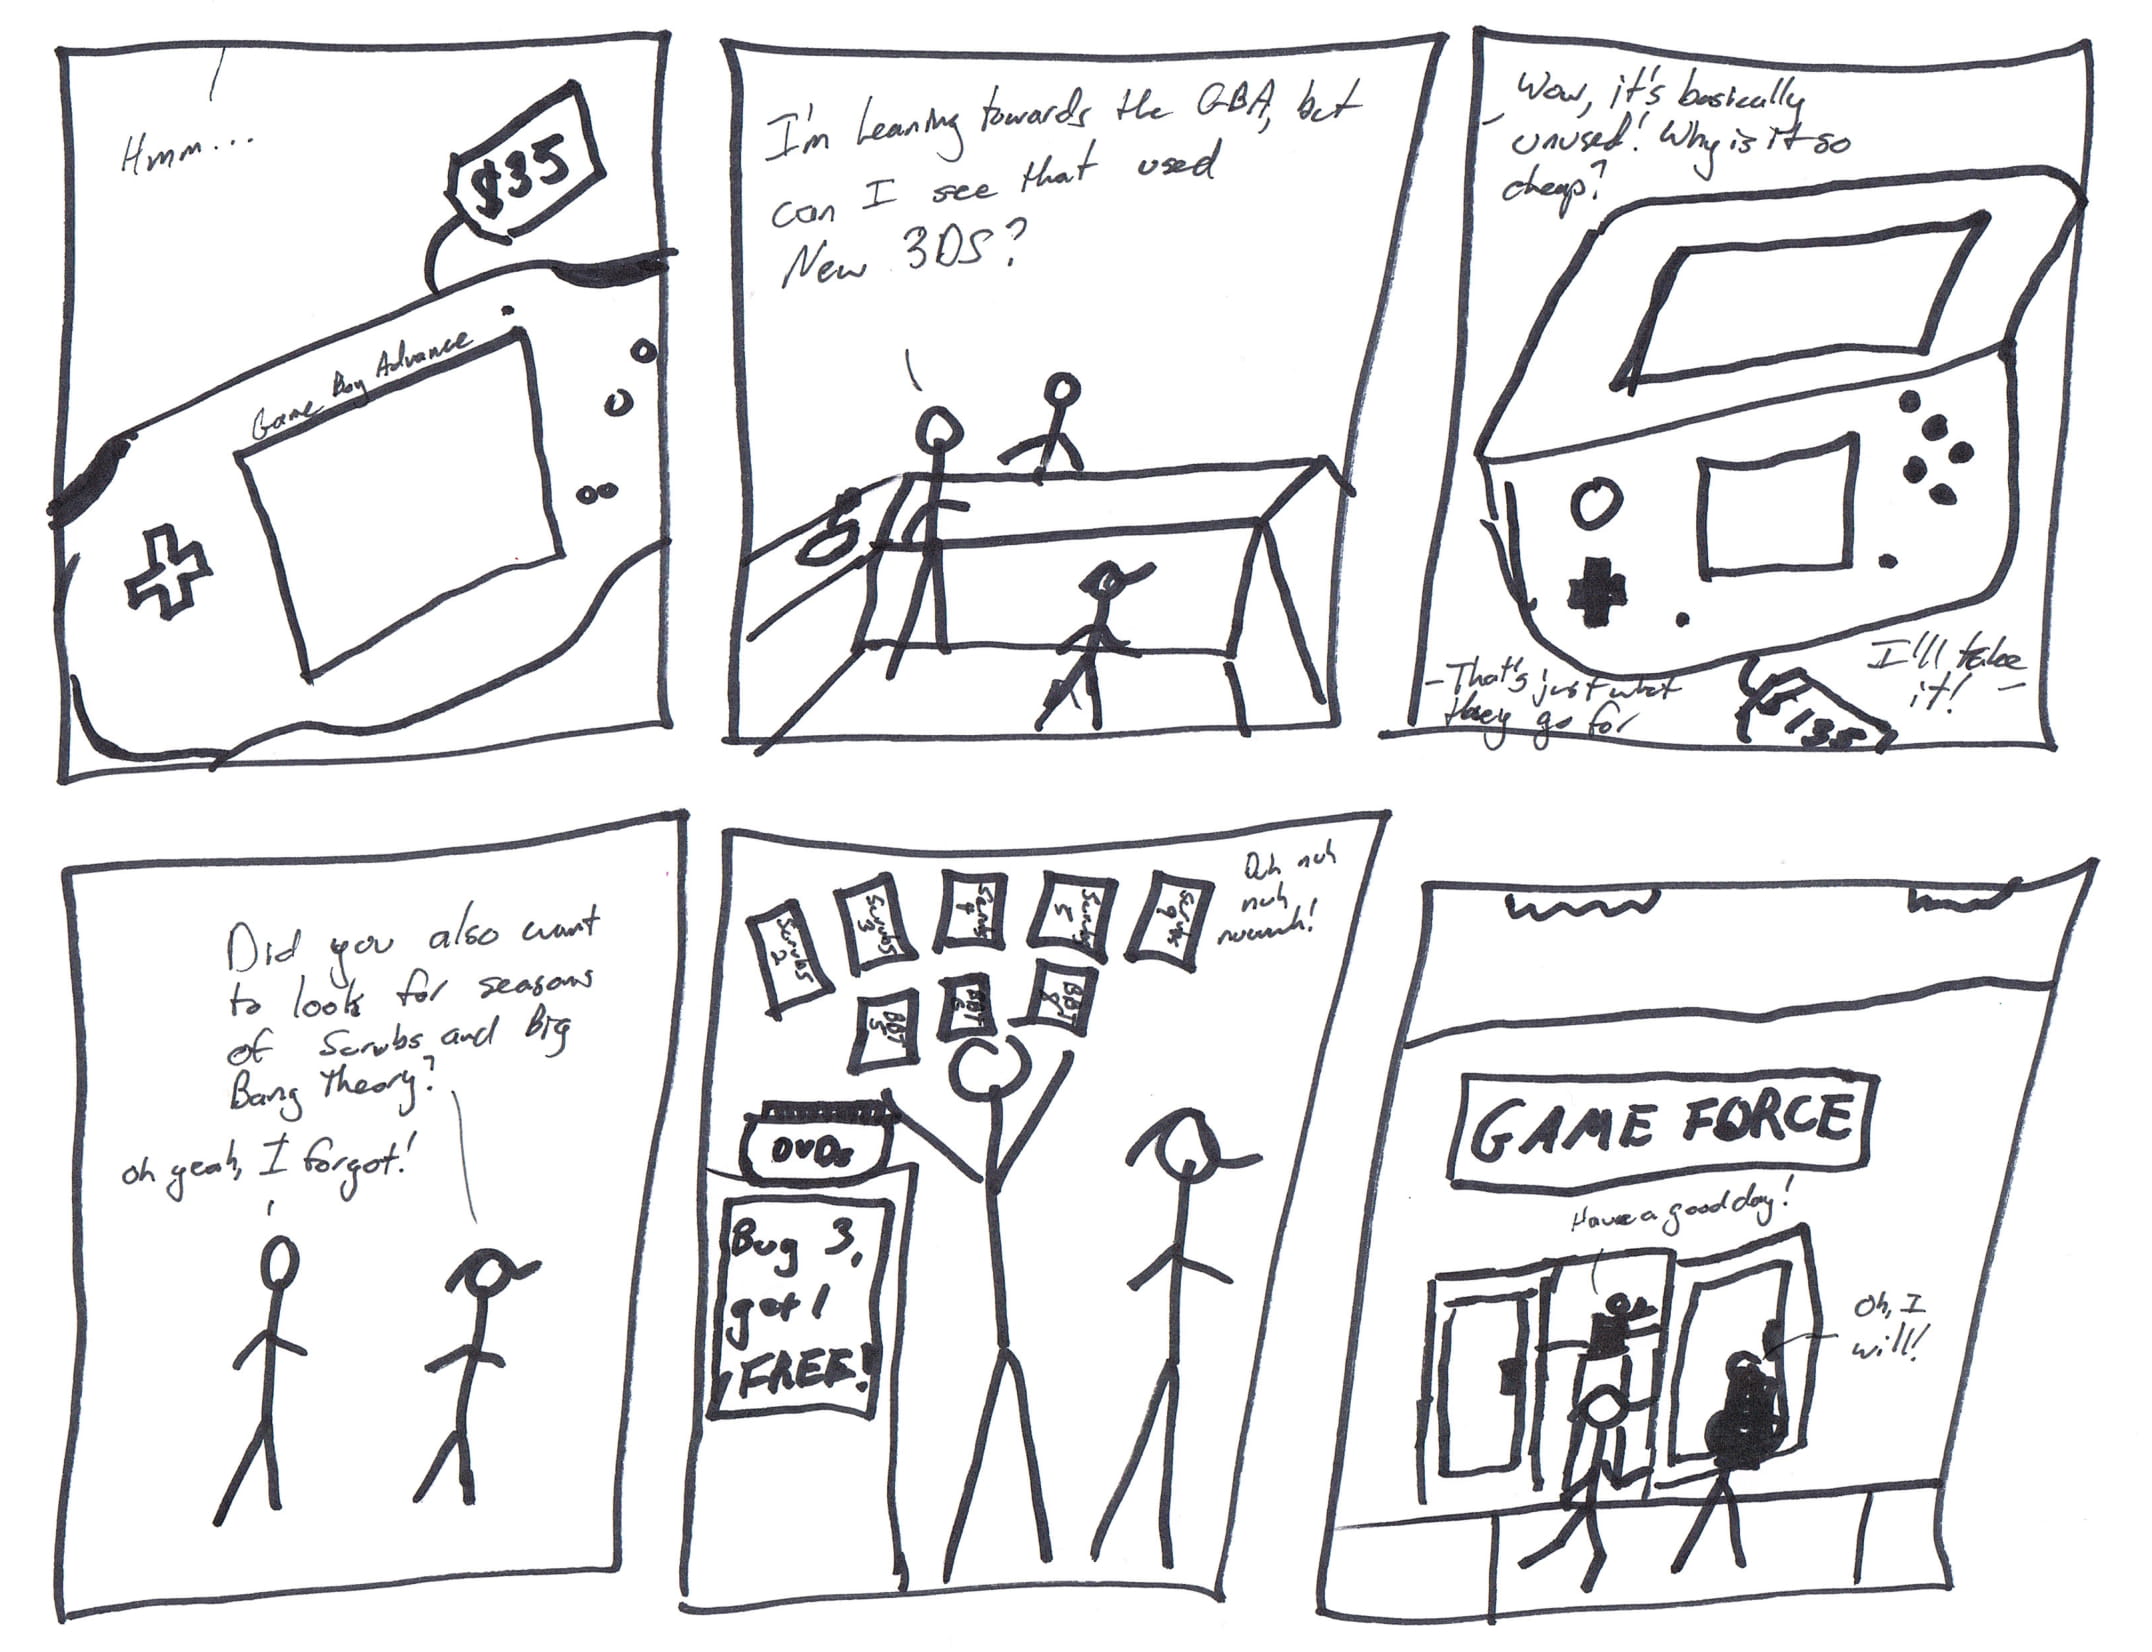 Hmm...
$35
Game Boy Advance
I'm leaning towards the GBA, but
can I see that used
New 3DS?
Wow, it's basically
unused! Why is it so
cheap?
- That's just what
they go for
I'll take
it! -
$135
Did you also want
to look for seasons
of Scrubs and Big
Bang Theory?
oh yeah, I forgot!
Scrubs
2
Scrubs
3
Scrubs
4
Scrubs
5
Scrubs
9
BBT
5
BBT
6
BBT
8
nuh
nuh
DVDs
Buy 3,
get 1
FREE!
GAME FORCE
Have a good day!
Oh, I
will!